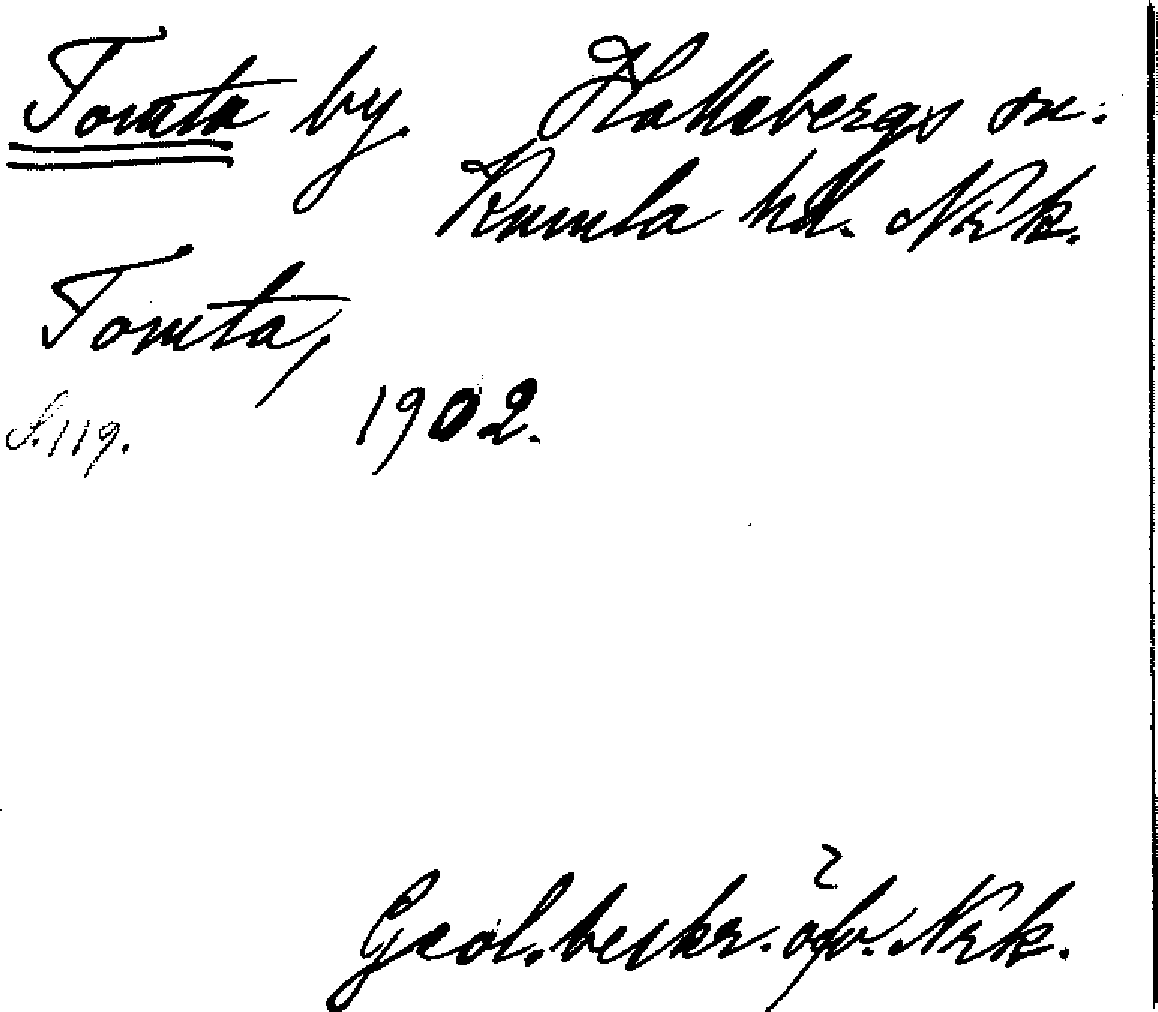 Tomta by. Hallsbergs sn:
Kumla hd. Nrk.
Tomta,
S. 119. 1902.
Geol. beskr. öfv. Nrk.